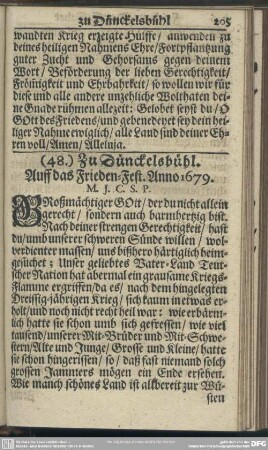 zu Dünckelsbühl 205
wandten Krieg erzeigte Hülffe / anwenden zu
deines heiligen Nahmens Ehre / Fortpflantzung
guter Zucht und Gehorsams gegen deinem
Wort / Beförderung der lieben Gerechtigkeit /
Frömigkeit und Ehrbahrkeit / so wollen wir für
diese und alle andere unzehliche Wolthaten dei-
ne Gnade rühmen allzeit: Gelobet seyst du / O
GOtt des Friedens / und gebenedeyet sey dein hei-
liger Nahme ewiglich / alle Land sind deiner Eh-
ren voll / Amen / Alleluja.
(48.) Zu Dünckelsbühl.
Auff das Frieden-Fest. Anno 1679.
M. J. C. S. P.
GRoßmächtiger GOtt / der du nicht allein
gerecht / sondern auch barmhertzig bist.
Nach deiner strengen Gerechtigkeit / hast
du / umb unserer schweren Sünde willen / wol-
verdienter massen / uns bißhero härtiglich heim-
gesuchet: Unser geliebtes Vater-Land Teut-
scher Nation hat abermal ein grausame Kriegs-
Flamme ergriffen / da es / nach dem hingelegten
Dreissig-jährigen Krieg / sich kaum in etwas er-
holt / und noch nicht recht heil war: wie erbärm-
lich hatte sie schon umb sich gefressen / wie viel
tausend / unserer Mit-Brüder und Mit-Schwe-
stern / Alte und Junge / Grosse und Kleine / hatte
sie schon hingerissen / so / daß fast niemand solch
grossen Jammers mögen ein Ende ersehen.
Wie manch schönes Land ist allbereit zur Wü-
sten